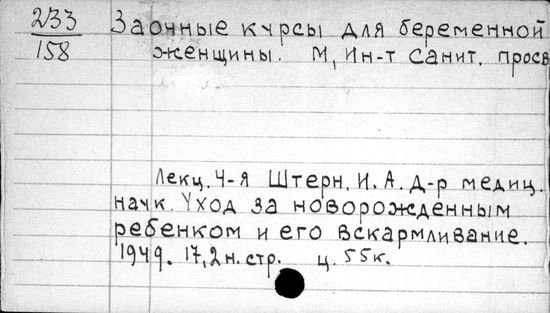 233
158
Заочные курсы для беременной
женщины. М, Ин-т Санит. просв
Лекц. 4-я Штерн, И. А. д-р медиц.
наук. Уход за новорожденным
ребенком и его вскармливание.
1949. 17,2 н. стр. ц. 55к.